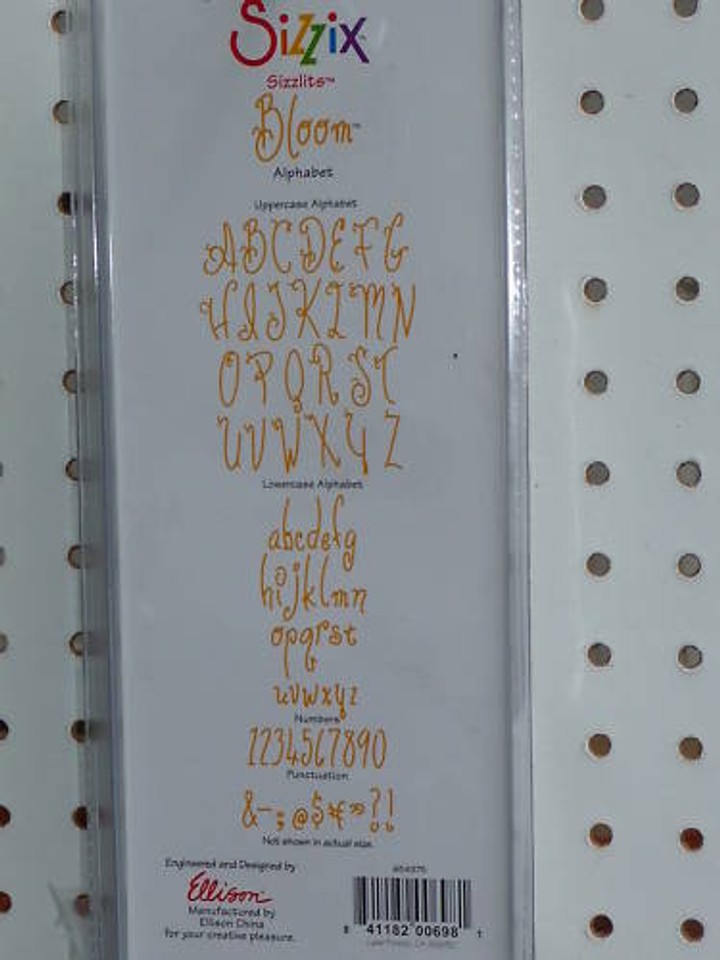 Sizzix
Sizzlits™
Bloom™
Alphabet
Uppercase Alphabet
ABCDEFG
HIJKLMN
OPQRST
UVWXYZ
Lowercase Alphabet
abcdefg
hijklmn
opqrst
uvwxyz
Numbers
1234567890
Punctuation
Not shown in actual size.
Engineered and Designed by
Ellison™
Manufactured by
Ellison China
for your creative pleasure.
8 41182 00698 1